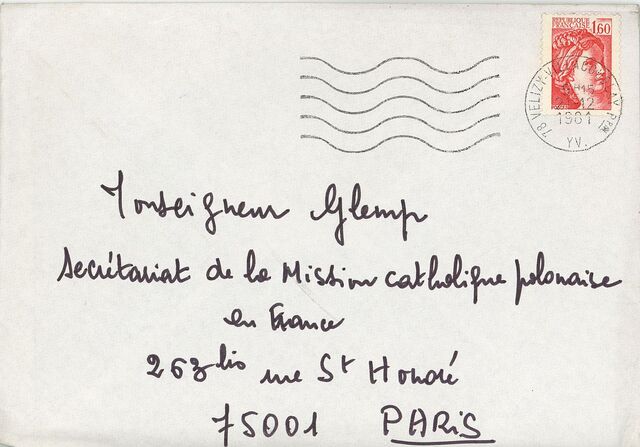 REPUBLIQUE FRANCAISE 1,60
78 VELIZY-VILLACOUBLAY PPAL
12
1981
YV.
Monseigneur Glemp
secrétariat de la Mission catholique polonaise
en France
263 bis rue St Honoré
75001 PARIS